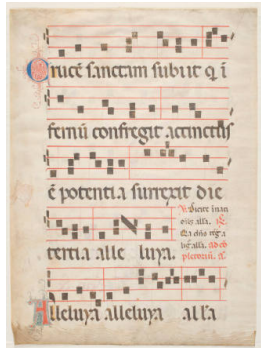 Crucē sanctam subiit q̄ ī
fernū confregit accinct⁹
ē potentia surrexit die
tertia alle luya.
Alleluya alleluya alla